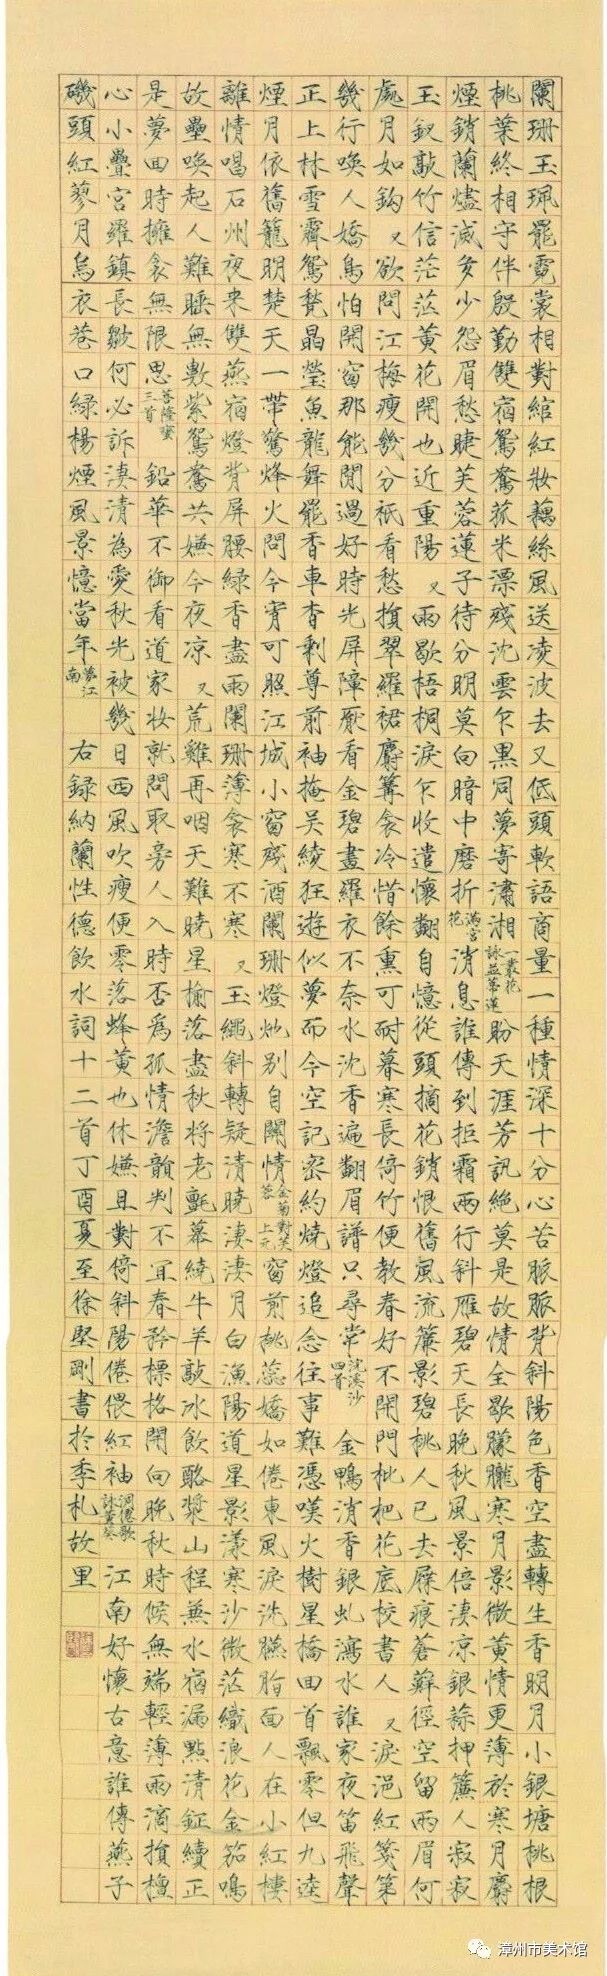 闌珊玉珮罷霓裳相對綰紅妝藕絲風送凌波去又低頭軟語商量一種情深十分心苦脈脈背斜陽色香空盡轉生香明月小銀塘桃根
桃葉終相守伴殷勤雙宿鴛鴦菰米漂殘沈雲乍黑同夢寄瀟湘一叢花詠並蒂蓮盼天涯芳訊絕莫是故情全歇朦朧寒月影微黃情更薄於寒月麝
煙銷蘭燼滅多少怨眉愁睫芙蓉蓮子待分明莫向暗中磨折滿宮花消息誰傳到拒霜兩行斜雁碧天長晚秋風景倍淒凉銀蒜押簾人寂寂
玉釵敲竹信茫茫黃花開也近重陽又雨歇梧桐淚乍收遣懷翻自憶從頭摘花銷恨舊風流簾影碧桃人已去屧痕蒼蘚徑空留兩眉何
處月如鈎又欲問江梅瘦幾分祇看愁損翠羅裙麝篝衾冷惜餘熏可耐暮寒長倚竹便教春好不開門枇杷花底校書人又淚浥紅箋第
幾行喚人嬌鳥怕開窗那能閒過好時光屏障厭看金碧畫羅衣不奈水沈香遍翻眉譜只尋常浣溪沙四首金鴨消香銀虬瀉水誰家夜笛飛聲
正上林雪霽鴛甃晶瑩魚龍舞罷香車杳剩尊前袖掩吳綾狂遊似夢而今空記密約燒燈追念往事難憑嘆火樹星橋回首飄零但九逵
煙月依舊籠明楚天一帶驚烽火問今宵可照江城小窗殘酒闌珊燈灺別自關情金菊對芙蓉上元窗前桃蕊嬌如倦東風淚洗臙脂面人在小紅樓
離情唱石州夜來雙燕宿燈背屏腰綠香盡雨闌珊薄衾寒不寒又玉繩斜轉疑清曉淒淒月白漁陽道星影漾寒沙微茫織浪花金笳鳴
故壘喚起人難睡無數紫鴛鴦共嫌今夜凉又荒雞再咽天難曉星榆落盡秋將老氈幕繞牛羊敲冰飲酪漿山程兼水宿漏點清鉦續正
是夢回時擁衾無限思菩薩蠻三首鉛華不御看道家妝就問取旁人入時否為孤情澹韻判不宜春矜標格開向晚秋時候無端輕薄雨滴損檀
心小疊宮羅鎮長皺何必訴淒清為愛秋光被幾日西風吹瘦便零落蜂黃也休嫌且對倚斜陽倦偎紅袖洞僊歌詠黃葵江南好懷古意誰傳燕子
磯頭紅蓼月烏衣巷口綠楊煙風景憶當年夢江南右録納蘭性德飲水詞十二首丁酉夏至徐堅剛書於季札故里
漳州市美术馆